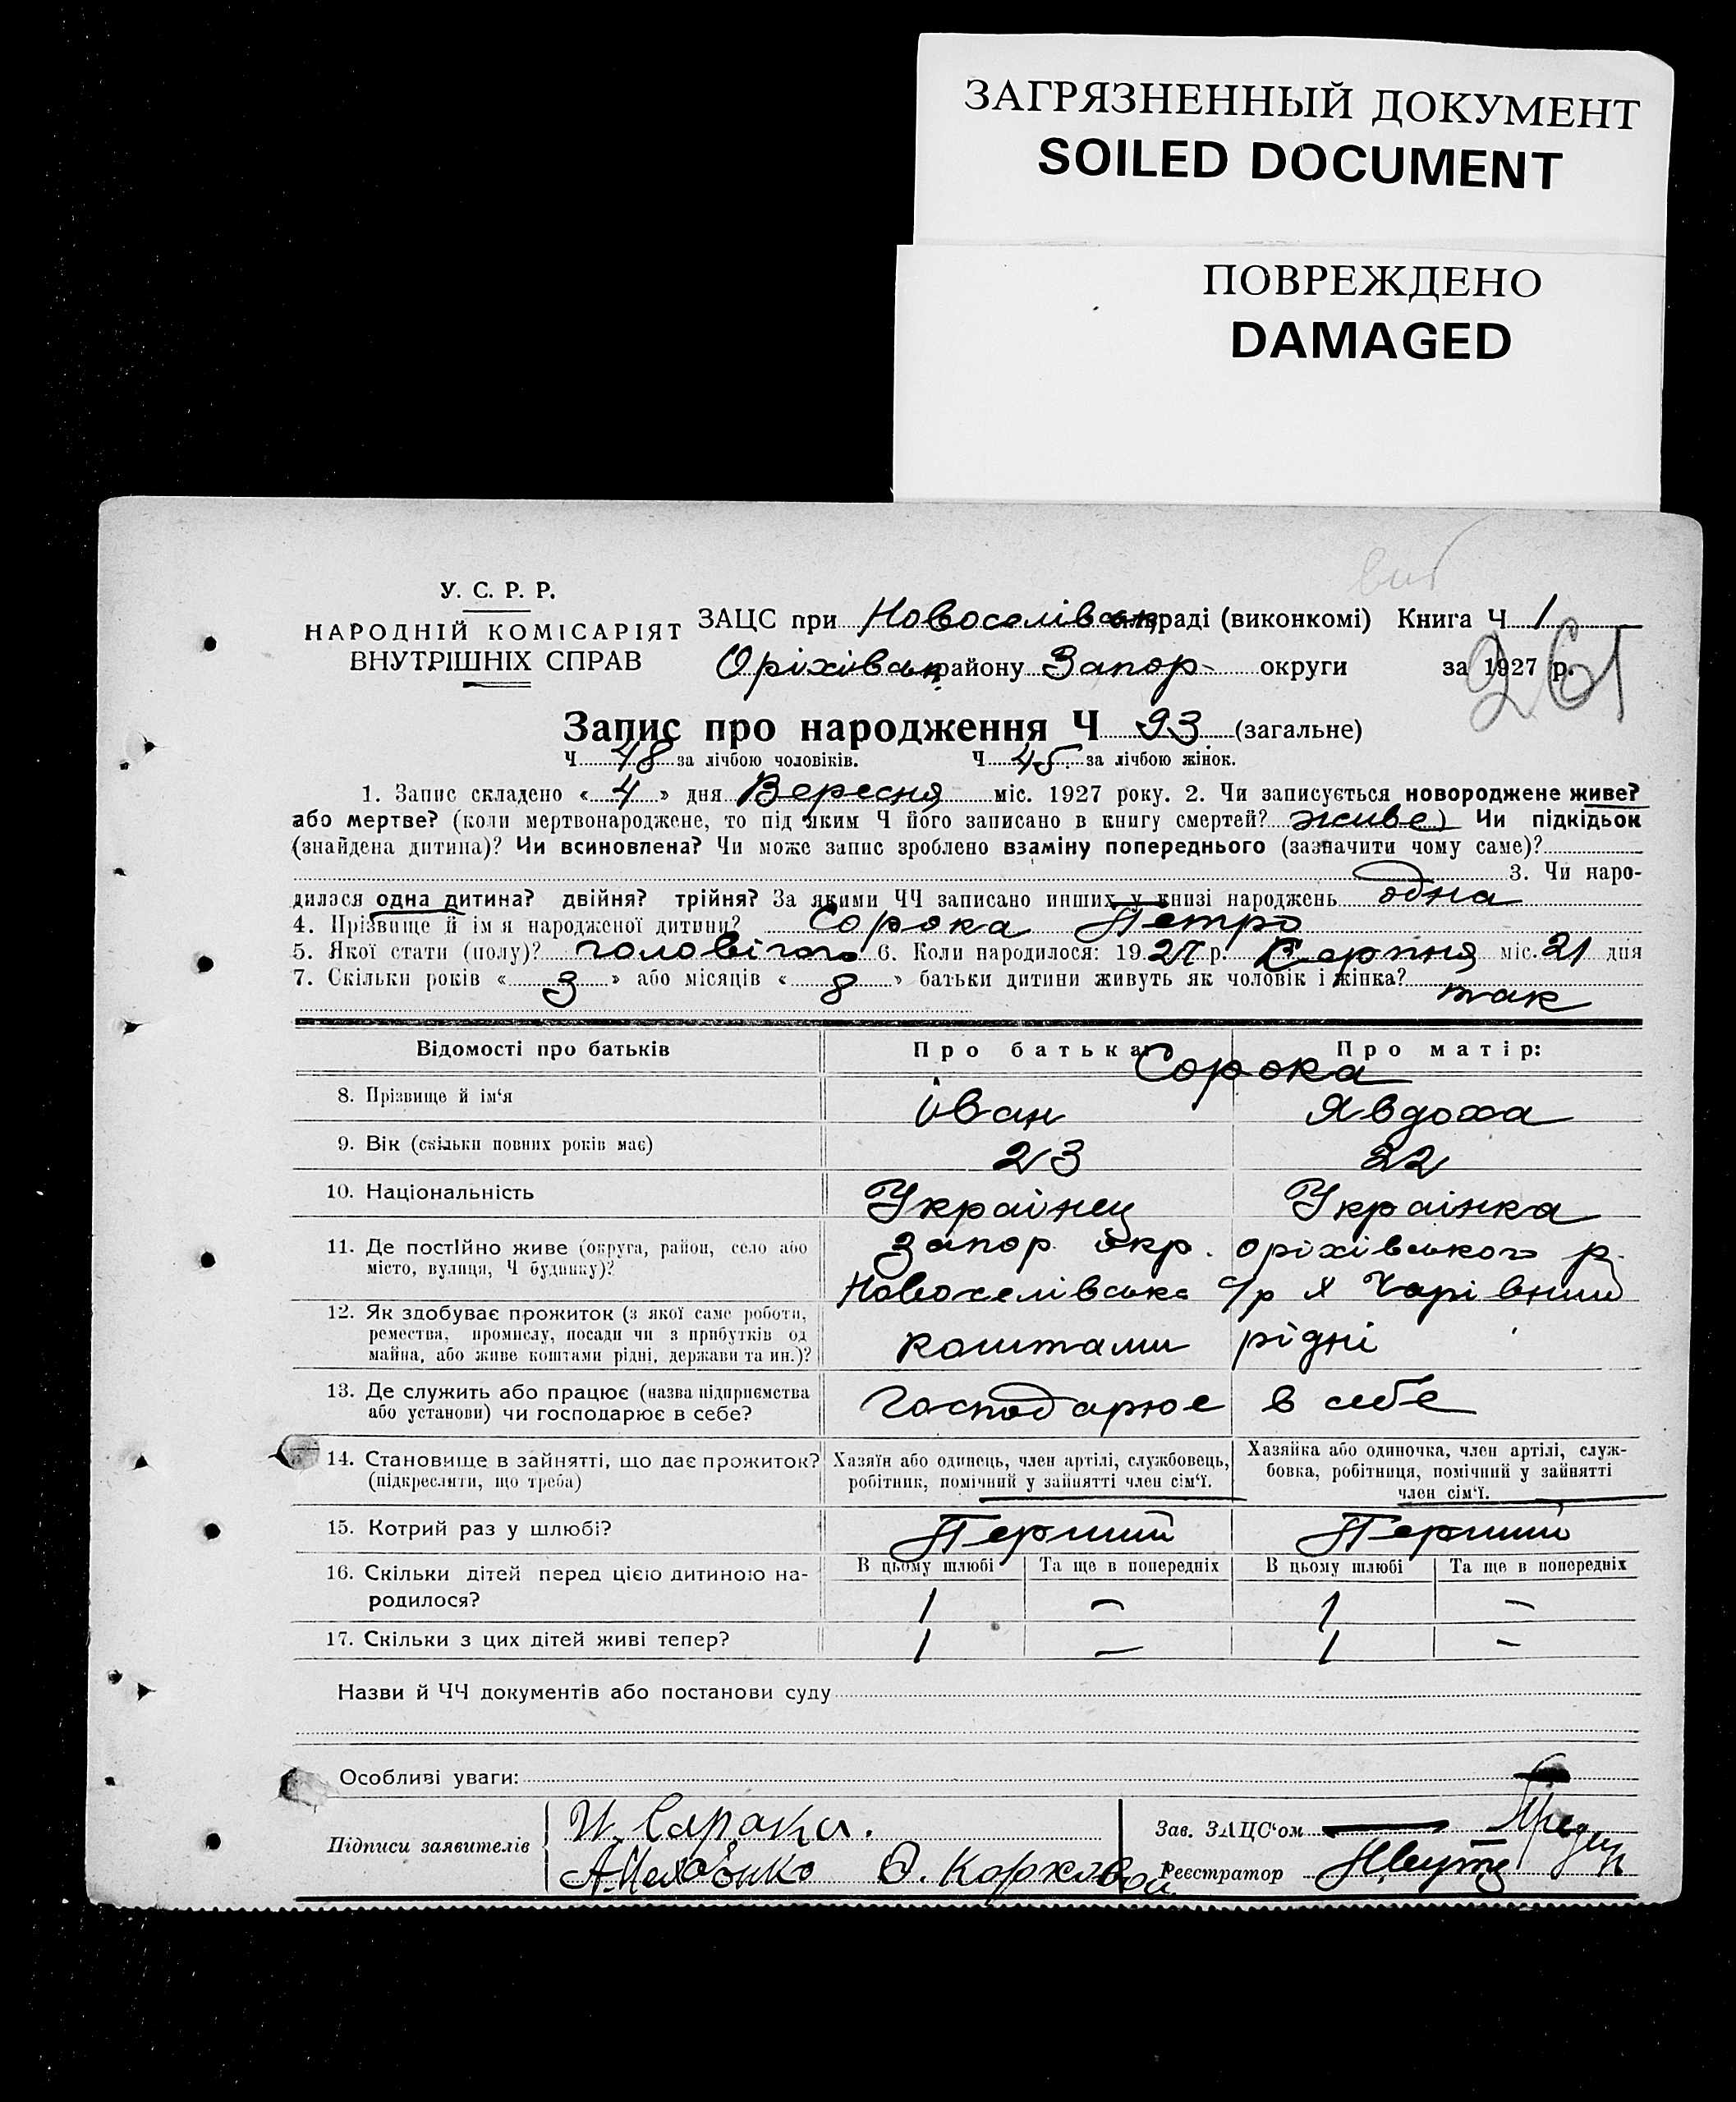 ЗАГРЯЗНЕННЫЙ ДОКУМЕНТ
SOILED DOCUMENT
ПОВРЕЖДЕНО
DAMAGED
У. С. Р. Р.
НАРОДНІЙ КОМІСАРІЯТ
ВНУТРІШНІХ СПРАВ
ЗАЦС при Новоселівськ раді (виконкомі) Книга Ч 1
Оріхівськ району Запор. округи за 1927 р.
261
Запис про народження Ч 93 (загальне)
Ч 48 за лічбою чоловіків. Ч 45 за лічбою жінок.
1. Запис складено «4» дня Вересня міс. 1927 року. 2. Чи записується новороджене живе?
або мертве? (коли мертвонароджене, то під яким Ч його записано в книгу смертей? живе Чи підкідьок
(знайдена дитина)? Чи всиновлена? Чи може запис зроблено взаміну попереднього (зазначити чому саме)?
3. Чи наро-
дилося одна дитина? двійня? трійня? За якими ЧЧ записано инших у книзі народжень одна
4. Прізвище й ім'я народженої дитини? Сорока Петро
5. Якої стати (полу)? чоловічого 6. Коли народилося: 1927 р. Серпня міс. 21 дня
7. Скільки років «3» або місяців «8» батьки дитини живуть як чоловік і жінка? так
Відомості про батьків Про батька: Про матір:
Сорока
8. Прізвище й ім'я Іван Явдоха
9. Вік (скільки повних років має) 23 22
10. Національність Украінец Украінка
11. Де постійно живе (округа, район, село або Запор окр. оріхівського р.
місто, вулиця, Ч будинку)? Новоселівська с/р х Чарівний
12. Як здобуває прожиток (з якої саме роботи,
ремества, промислу, посади чи з прибутків од
майна, або живе коштами рідні, держави та ин.)? коштами рідні
13. Де служить або працює (назва підприємства
або установи) чи господарює в себе? господарює в себе
14. Становище в зайнятті, що дає прожиток?
(підкреслити, що треба)
Хазяїн або одинець, член артілі, службовець,
робітник, помічний у зайнятті член сім'ї.
Хазяйка або одиночка, член артілі, служ-
бовка, робітниця, помічний у зайнятті
член сім'ї.
15. Котрий раз у шлюбі? Перший Перший
В цьому шлюбі Та ще в попередніх В цьому шлюбі Та ще в попередніх
16. Скільки дітей перед цією дитиною на-
родилося? 1 – 1 –
17. Скільки з цих дітей живі тепер? 1 – 1 –
Назви й ЧЧ документів або постанови суду
Особливі уваги:
Підписи заявителів И. Сарока.
Зав. ЗАЦС'ом
Реєстратор